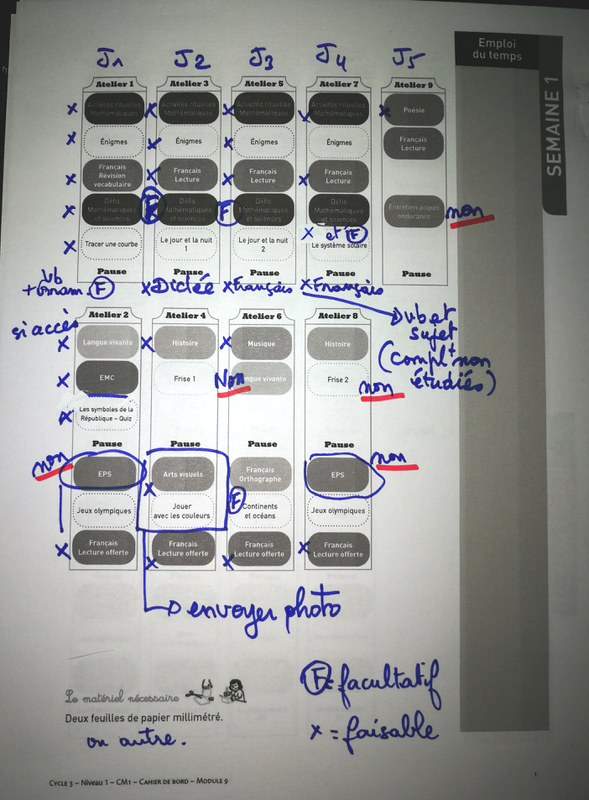 J1 J2 J3 J4 J5
Emploi
du temps
SEMAINE 1
Atelier 1
x Activités rituelles
Mathématiques
x Énigmes
x Français
Révision
vocabulaire
x Défis
Mathématiques
et sciences
x Tracer une courbe
Pause
Atelier 3
x Activités rituelles
Mathématiques
x Énigmes
x Français
Lecture
F Défis
Mathématiques
et sciences
Le jour et la nuit
1
Pause
x Dictée
Atelier 5
x Activités rituelles
Mathématiques
x Énigmes
x Français
Lecture
F Défis
Mathématiques
et sciences
Le jour et la nuit
2
Pause
x Français
Atelier 7
x Activités rituelles
Mathématiques
Énigmes
x Français
Lecture
Défis
Mathématiques
et sciences
x et F
Le système solaire
Pause
x Français
Atelier 9
x Poésie
Français
Lecture
Entretien acquis
endurance
non
Pause
F
vb et
sujet
(compl^t non
étudiés)
si accès
Atelier 2
x Langue vivante
x EMC
x Les symboles de la
République – Quiz
Pause
non
EPS
Jeux olympiques
x Français
Lecture offerte
Atelier 4
x Histoire
Frise 1
Pause
Arts visuels
x
Jouer
avec les couleurs
x Français
Lecture offerte
Atelier 6
x Musique
Non
Langue vivante
Pause
Français
Orthographe
F Continents
et océans
x Français
Lecture offerte
Atelier 8
Histoire
Frise 2
non
Pause
EPS
non
Jeux olympiques
x Français
Lecture offerte
envoyer photo
F = facultatif
x = faisable
Le matériel nécessaire
Deux feuilles de papier millimétré.
ou autre.
CYCLE 3 – NIVEAU 1 – CM1 – CAHIER DE BORD – MODULE 9
1